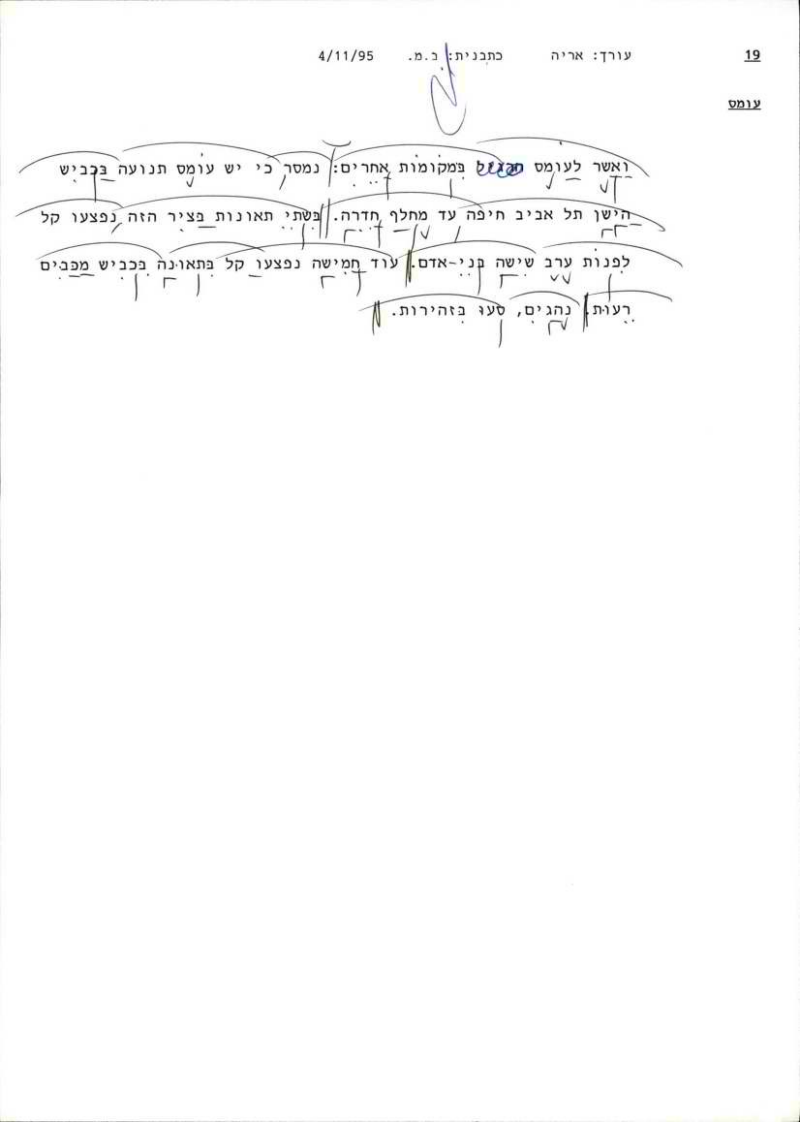 19 עורך: אריה כתבנית: ב.מ. 4/11/95
עומס
ואשר לעומס במקומות אחרים: נמסר כי יש עומס תנועה בכביש
הישן תל אביב חיפה עד מחלף חדרה. בשתי תאונות בציר הזה נפצעו קל
לפנות ערב שישה בני-אדם. עוד חמישה נפצעו קל בתאונה בכביש מכבים
רעות. נהגים, סעו בזהירות.